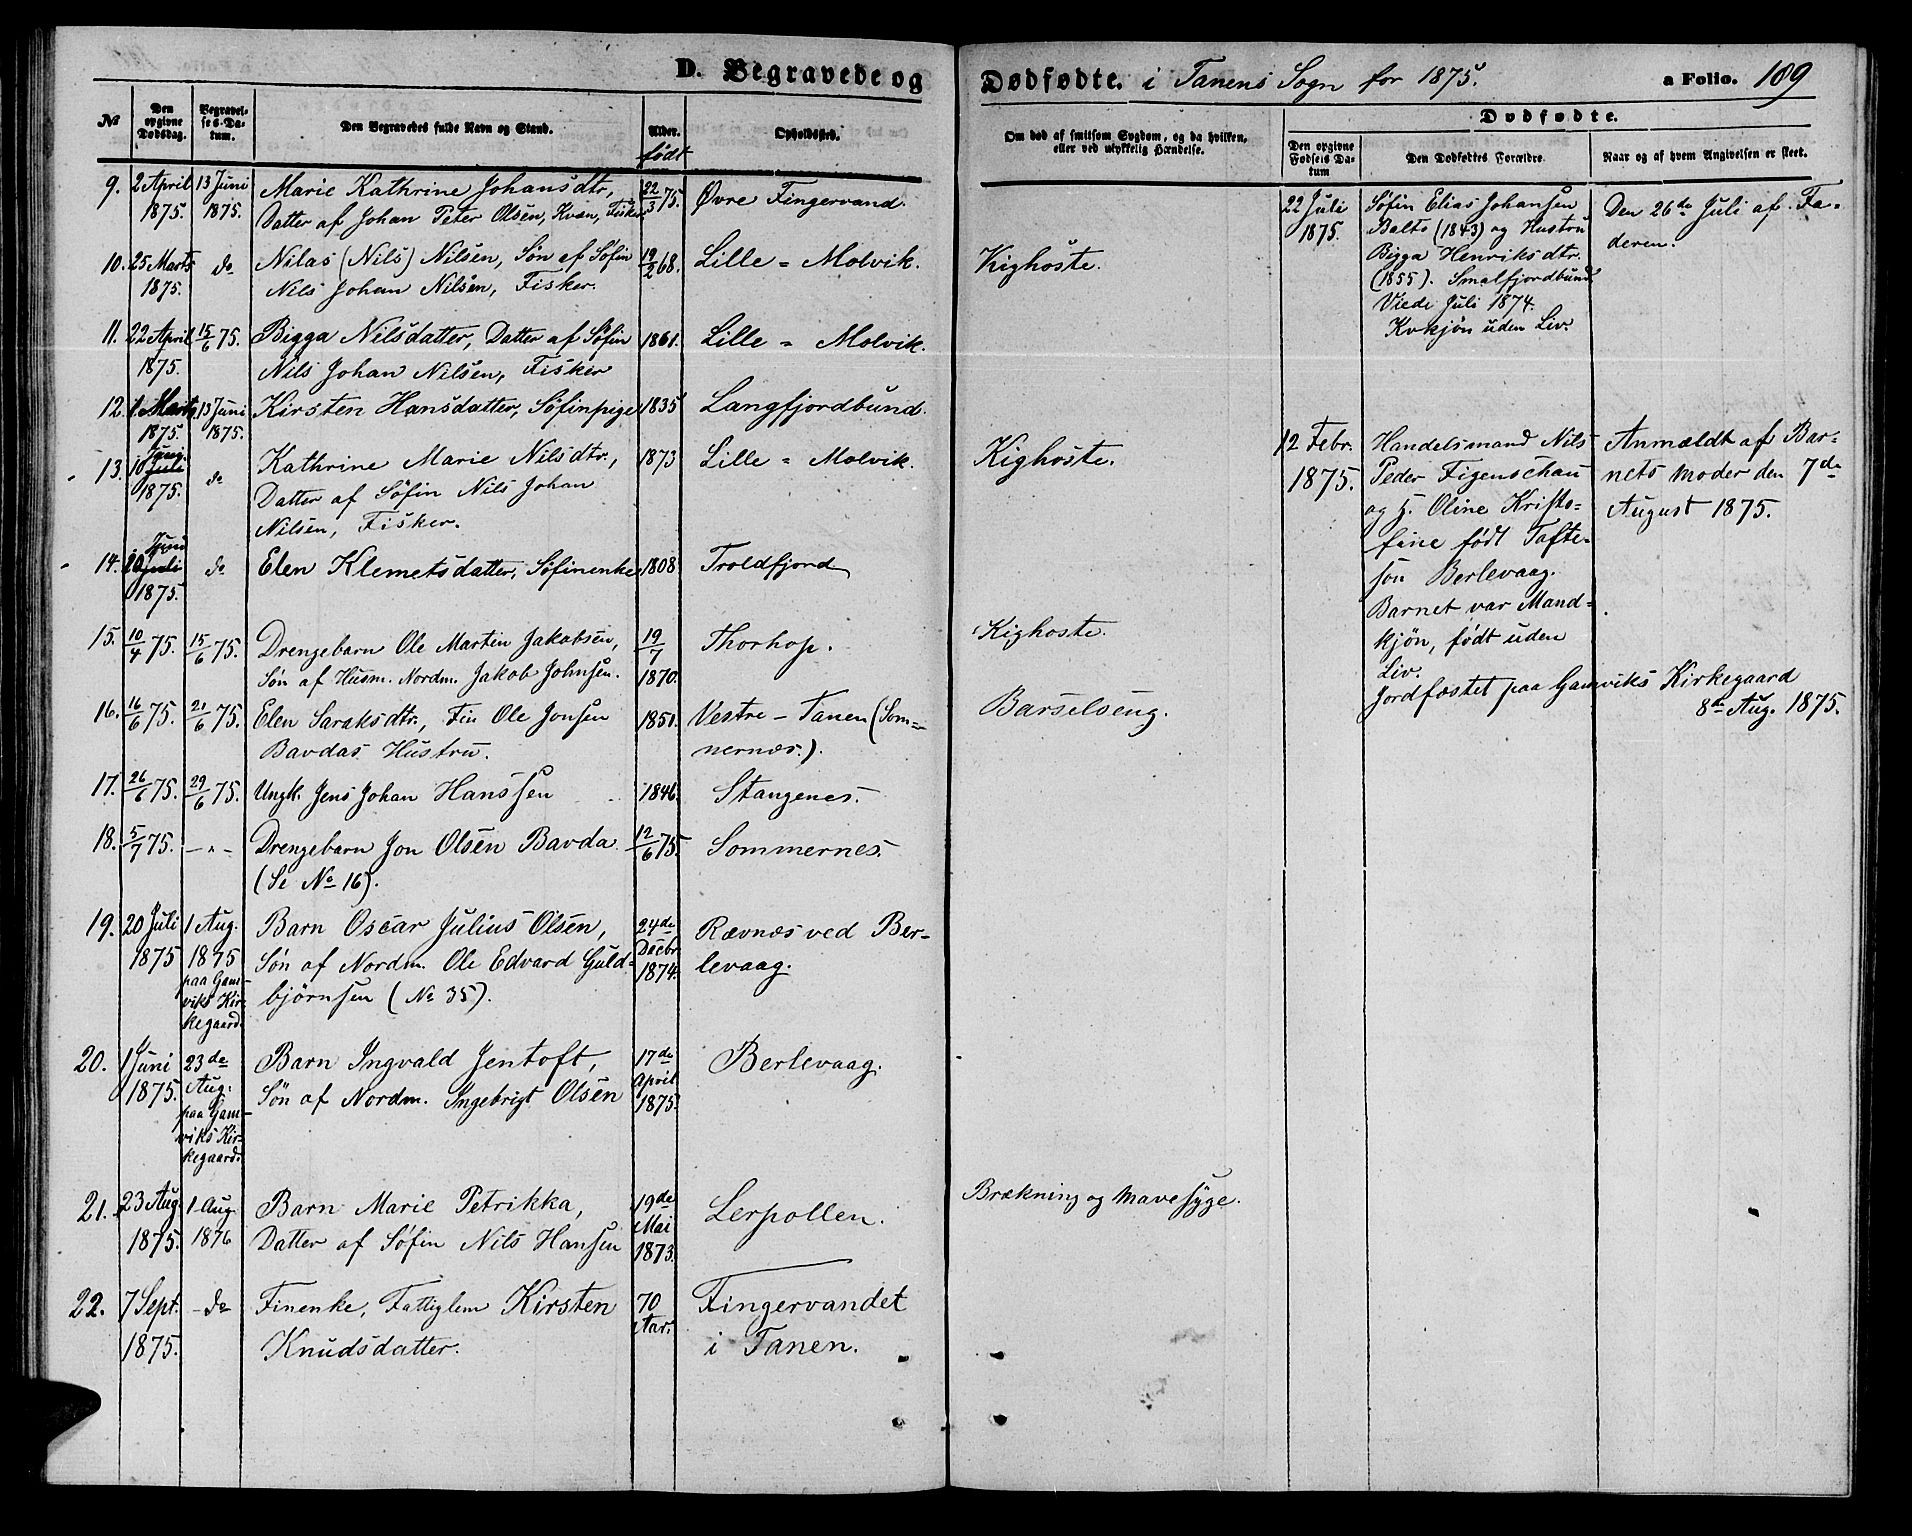 D. Begravede og Dødfødte. i Tanens Sogn for 1875. a Folio. 109
No
Den opgivne Dødsdag.
Begravelses-Datum.
Den Begravedes fulde Navn og Stand.
Alder.
født
Opholdssted.
Om død af smitsom Sygdom, og da hvilken,
eller ved ulykkelig Hændelse.
Dødfødte.
Den opgivne Fødsels Datum
Den Dødfødtes Forældre.
Naar og af hvem Angivelsen er skeet.
9. 2 April 13 Juni Marie Kathrine Johansdtr., 22/3 75. Øvre Fingervand.
1875. 1875. Datter af Johan Peter Olsen, Kvæn, Fisker
10. 25 Marts do Nilas (Nils) Nilsen, Søn af Søfin 19/2 68. Lille = Molvik. Kighoste.
1875. Nils Johan Nilsen, Fisker.
11. 22 April 15/6 75. Bigga Nilsdatter, Datter af Søfin 1861. Lille = Molvik.
1875. Nils Johan Nilsen, Fisker
12. 1 Marts 13 Juni Kirsten Hansdatter, Søfinpige 1835 Langfjordbund.
1875. 1875.
13. 10 Juli do Kathrine Marie Nilsdtr., 1873 Lille = Molvik. Kighoste.
1875. Datter af Søfin Nils Johan
Nilsen, Fisker.
Juni
14. 20 Juli do Elen Klemetsdatter, Søfinenke 1808 Troldfjord
1875.
15. 10/4 75. 15/6 75. Drengebarn Ole Martin Jakobsen, 19/7 Thorhop. Kighoste.
Søn af Husm. Nordm. Jakob Johnsen. 1870.
16. 16/6 75. 21/6 75. Elen Saraksdtr., Fin Ole Jonsen 1851. Vestre - Tanen (Som=
Bavdas Hustru. nernæs.). Barselseng.
17. 26/6 75. 29/6 75. Ungk. Jens Johan Hanssen 1846. Stangenes.
18. 5/7 75. - " - Drengebarn Jon Olsen Bavda. 12/6 75. Sommernes.
(Se No 16).
19. 20 Juli 1 Aug. Barn Oscar Julius Olsen, 24de Rævnæs ved Ber-
1875 1875 Søn af Nordm. Ole Edvard Guld- Decbr. levaag.
paa Gam- bjørnsen (No 35). 1874.
viks Kir-
kegaard.
20. 1 Juni 23de Barn Ingvald Jentoft, 17de Berlevaag.
1875. Aug. Søn af Nordm. Ingebrigt Olsen April
paa Gam- 1875.
viks Kir-
kegaard.
21. 23 Aug. 1 Aug. Barn Marie Petrikka, 19de Lerpollen. Brækning og Mavesyge.
1875. 1876 Datter af Søfin Nils Hansen Mai
1873.
22. 7 Sept. - do Finenke, Fattiglem Kirsten 70 Fingervandet
1875. Knudsdatter. Aar. i Tanen.
22 Juli Søfin Elias Johansen Den 26de Juli af Fa-
1875. Balto (1843) og Hustru deren.
Bigga Henriksdtr.
(1855). Smalfjordbund
Viede Juli 1874.
Kvkjøn uden Liv.
12 Febr. Handelsmand Nils Anmældt af Bar-
1875. Peder Figenschau nets Moder den 7de
og H. Oline Kristo- August 1875.
fine født Tofte-
søn Berlevaag.
Barnet var Mand-
kjøn, født uden
Liv.
Jordfæstet paa Gamviks Kirkegaard
8de Aug. 1875.